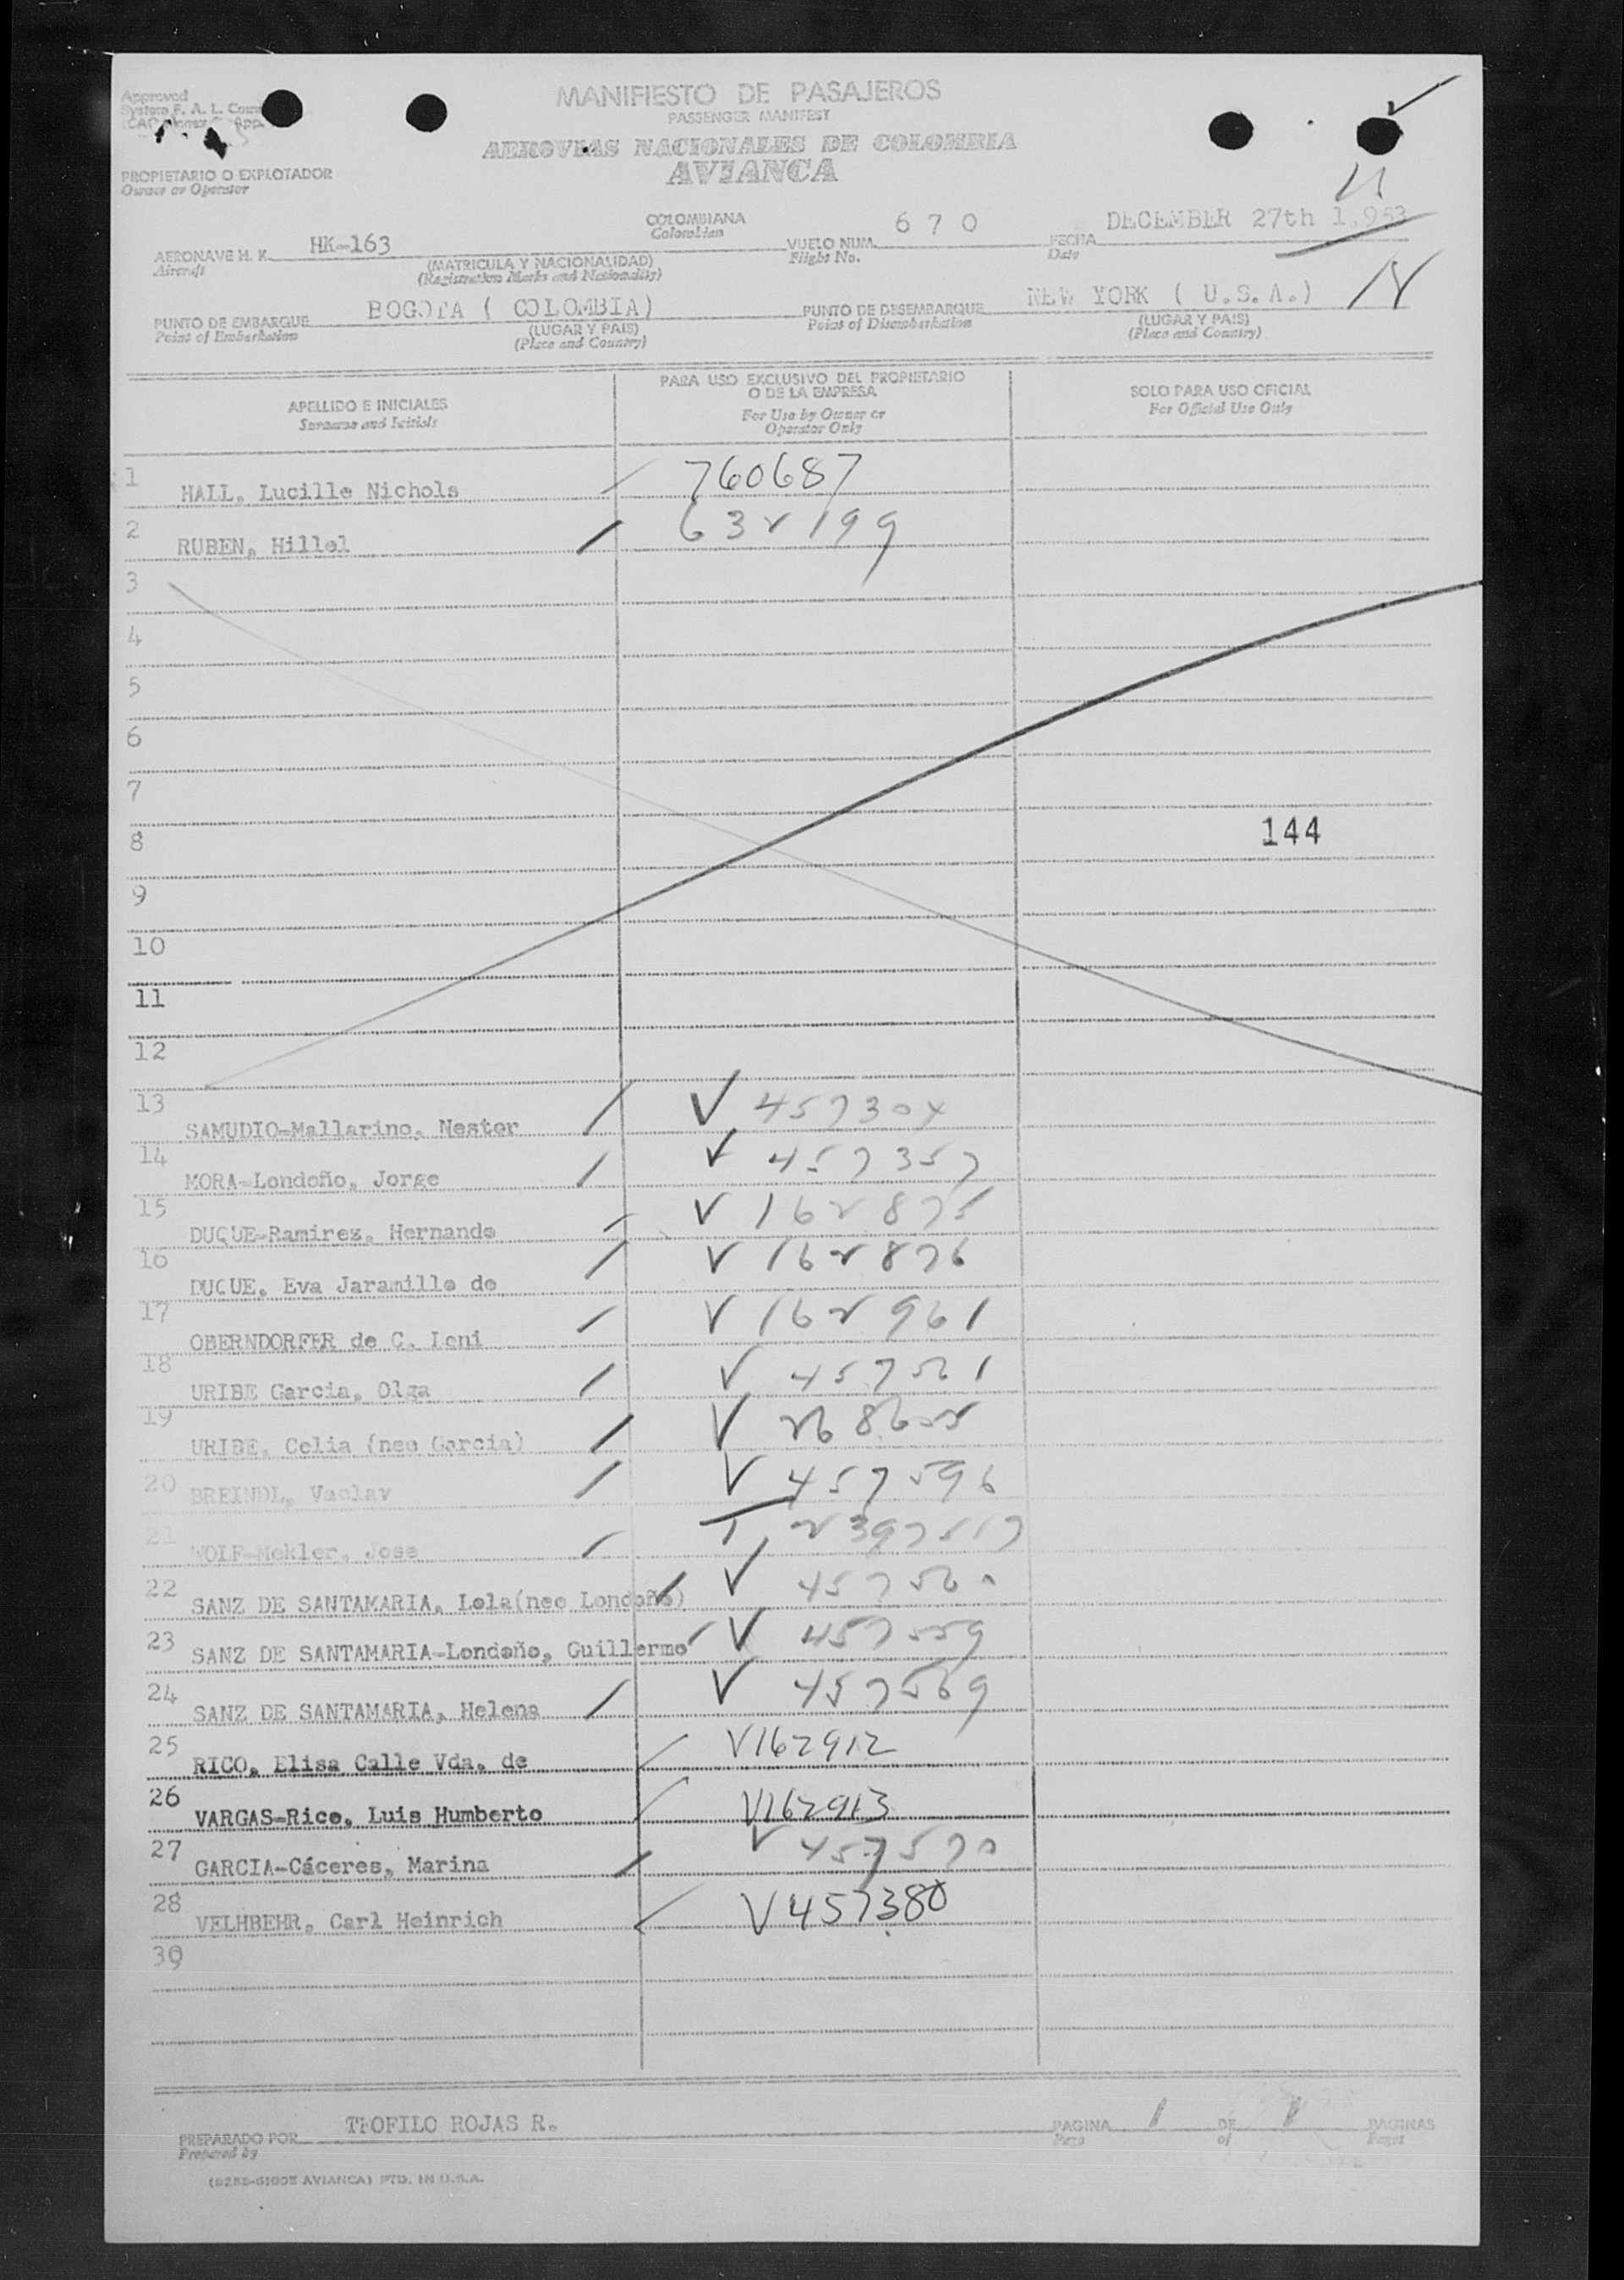 Approved
System F. A. L.
MANIFIESTO DE PASAJEROS
PASSENGER MANIFEST
AEROVIAS NACIONALES DE COLOMBIA
AVIANCA
PROPIETARIO O EXPLOTADOR
Owner or Operator
AERONAVE H. K. HK-163 COLOMBIANA VUELO NUM. 6 7 0 FECHA DECEMBER 27th 1,953
Aircraft Colombian Flight No. Date
(MATRICULA Y NACIONALIDAD)
(Registration Marks and Nationality)
PUNTO DE EMBARQUE BOGOTA ( COLOMBIA) PUNTO DE DESEMBARQUE NEW YORK ( U.S.A.)
Point of Embarkation (LUGAR Y PAIS) Point of Disembarkation (LUGAR Y PAIS)
(Place and Country) (Place and Country)
APELLIDO E INICIALES
Surname and Initials
PARA USO EXCLUSIVO DEL PROPIETARIO
O DE LA EMPRESA
For Use by Owner or
Operator Only
SOLO PARA USO OFICIAL
For Official Use Only
1 HALL, Lucille Nichols 760687
2 RUBEN, Hillel 632199
3
4
5
6
7
8 144
9
10
11
12
13 SAMUDIO-Mallarino, Nestor V 457304
14 MORA-Londoño, Jorge V 457357
15 DUQUE-Ramirez, Hernando V 162875
16 DUQUE, Eva Jaramillo de V 162876
17 OBERNDORFER de C. Leni V 162961
18 URIBE Garcia, Olga V 457561
19 URIBE, Celia (nee Garcia) V
20 BREINDL, Vaclav V 457596
21 WOLF-Mekler, Jose T
22 SANZ DE SANTAMARIA, Lola(nee Londoño) V 457560
23 SANZ DE SANTAMARIA-Londoño, Guillermo V 457559
24 SANZ DE SANTAMARIA, Helena V 457569
25 RICO, Elisa Calle Vda. de V162912
26 VARGAS-Rico, Luis Humberto V162913
27 GARCIA-Cáceres, Marina V 457570
28 VELHBEHR, Carl Heinrich V457380
30
PREPARADO POR TEOFILO ROJAS R. PAGINA 1 DE 1 PAGINAS
Prepared by Page of Pages
AVIANCA) PTD. IN U.S.A.